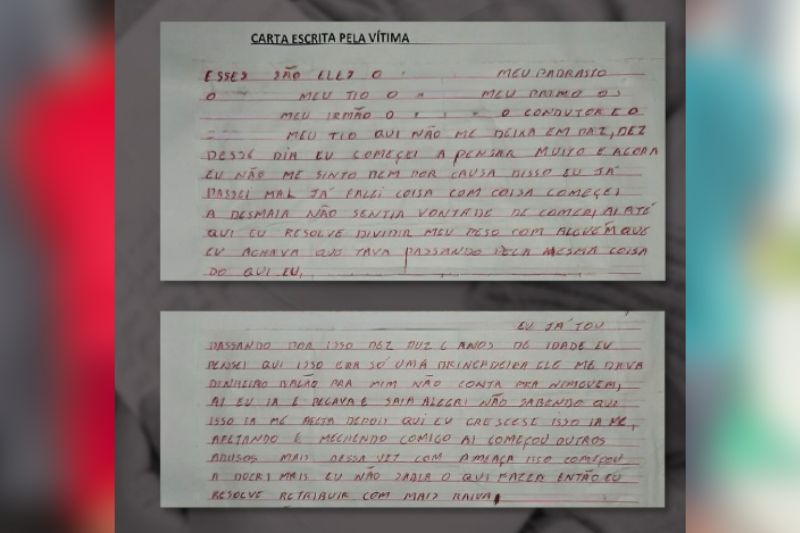 CARTA ESCRITA PELA VÍTIMA
ESSES SÃO ELES O MEU PADRASTO
O MEU TIO O MEU PRIMO OS
MEU IRMÃO O O CONDUTOR E O
MEU TIO QUI NÃO ME DEIXA EM PAZ, DEZ
DESSE DIA EU COMEÇEI A PENSAR MUITO E AGORA
EU NÃO ME SINTO BEM POR CAUSA DISSO EU JÁ
PASSEI MAL JÁ FALEI COISA COM COISA COMEÇEI
A DESMAIA NÃO SENTIA VONTADE DE COMER, AI ATÉ
QUI EU RESOLVE DIVIDIR MEU PESO COM ALGUÉM QUE
EU ACHAVA QUE TAVA PASSANDO PELA MESMA COISA
DO QUI EU,
EU JÁ TOU
PASSANDO POR ISSO DEZ DUZ 6 ANOS DE IDADE EU
PENSEI QUI ISSO ERA SÓ UMA BRINCADEIRA ELE ME DAVA
DINHEIRO BALÃO PRA MIM NÃO CONTA PRA NIMGUEM,
AI EU IA E PEGAVA E SAIA ALEGRI NÃO SABENDO QUI
ISSO IA ME AFETA DEPOIS QUI EU CRESCESE ISSO IA ME,
AFETANDO E MECHENDO COMIGO AI COMEÇOU OUTROS
ABUSOS MAIS DESSA VET COM AMEAÇA ISSO COMEÇOU
A DOER MAIS EU NÃO SABIA O QUI FAZER ENTÃO EU
RESOLVE RETRIBUIR COM MAIS RAIVA,